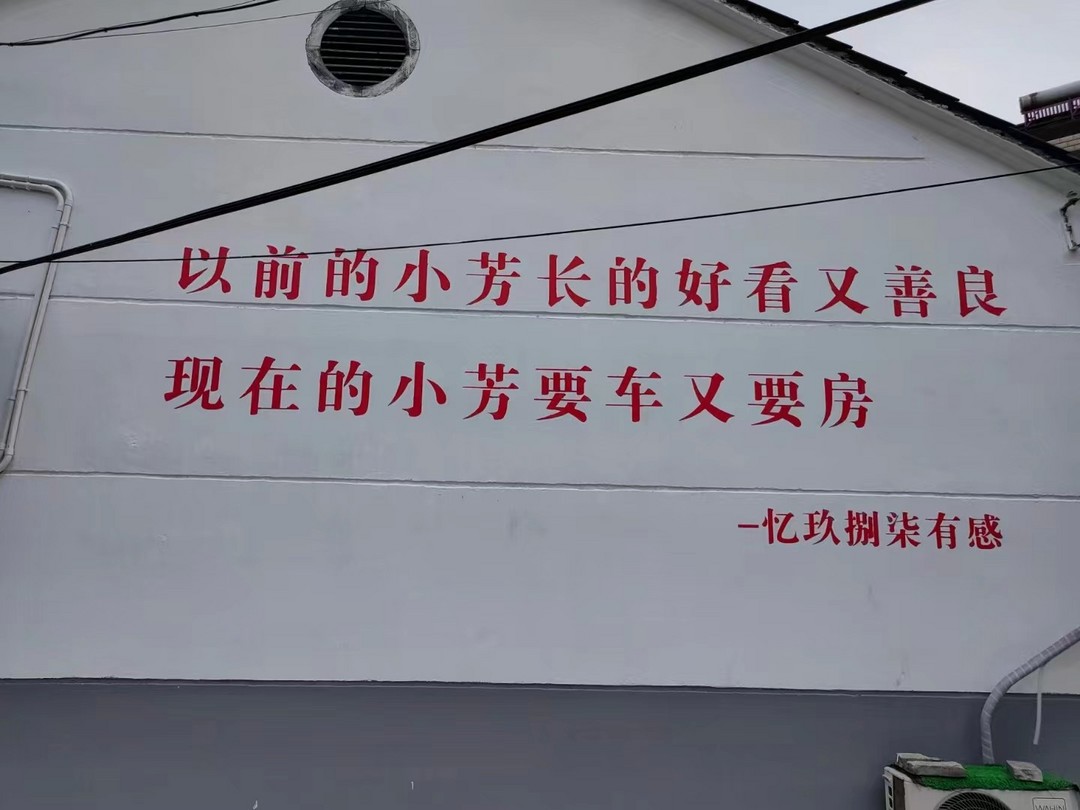 以前的小芳长的好看又善良
现在的小芳要车又要房
-忆玖捌柒有感